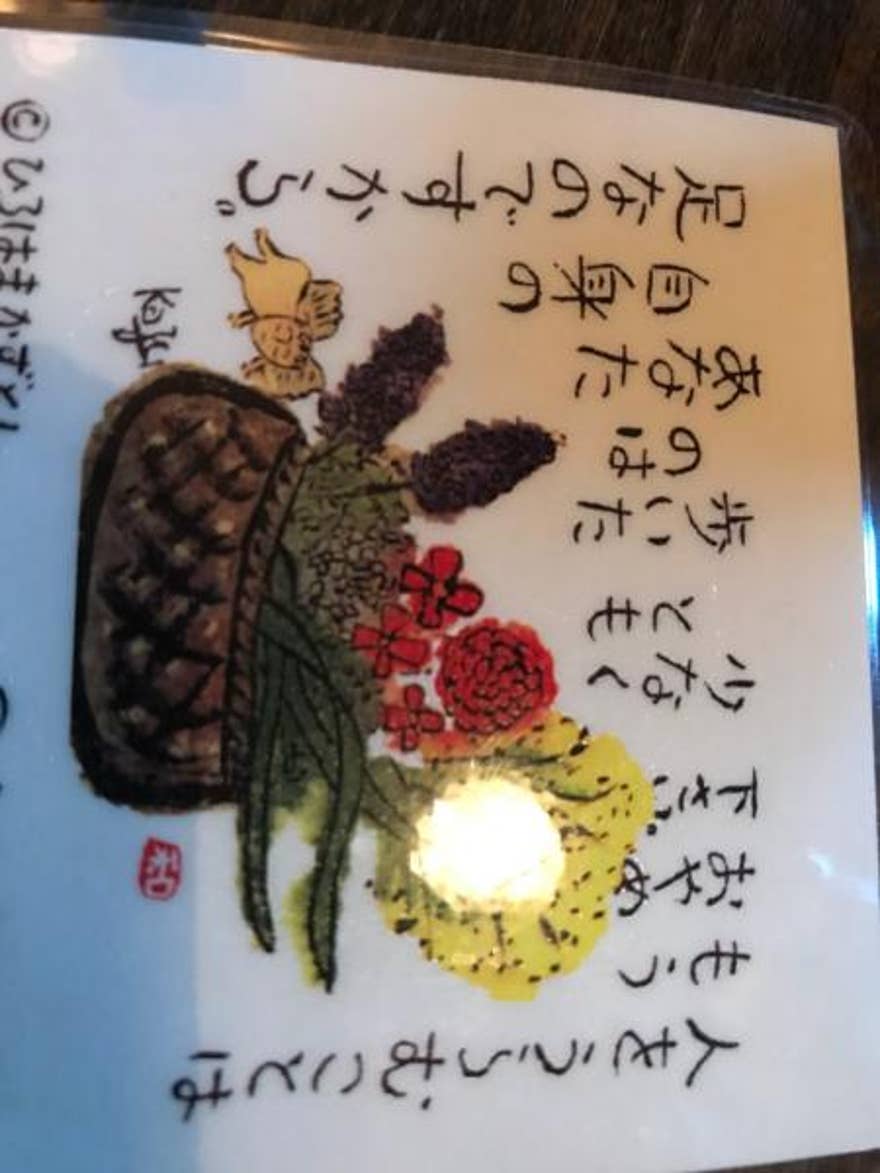 人をうらむことは
もう
おやめ
下さい。
少なく
とも
歩いた
のは
あなた
自身の
足なのですから。
Kazu
和
©ひろはまかずとし